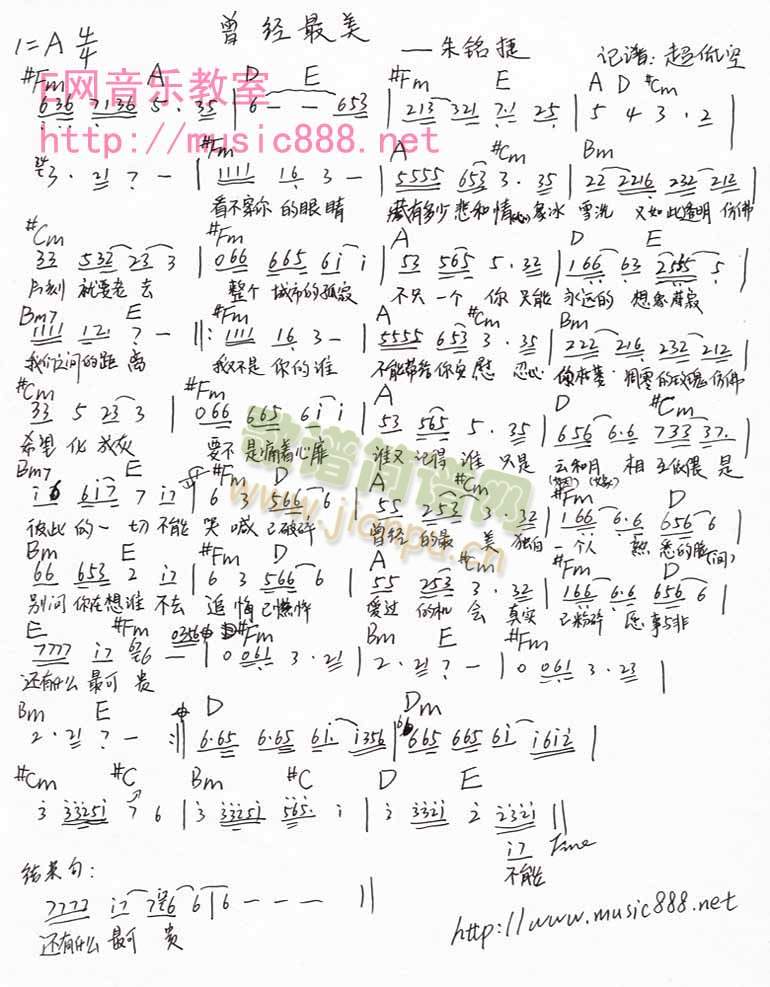 曾经最美
1=A 4/4 —朱铭捷 记谱:超低空
E网音乐教室
http://music888.net
#Fm A D E #Fm E A D #Cm
636 7136 5· 35 | 6 - - 653 | 213 321 7·1 25 | 5 4 3 · 2 |
#Fm A #Cm Bm
3· 21 7 - | 1111 16 3 - | 5555 653 3· 35 | 22 2216 232 212
看不穿你的眼睛 藏有多少悲和情 像冰雪洗 又如此透明 仿佛
#Cm #Fm A D E
33 532 23 3 | 066 665 6i i | 53 565 5· 32 | 166 63 2555 5 |
片刻就要老去 整个城市的孤寂 不只一个你 只能永远的想象
Bm7 E #Fm A #Cm Bm
1111 121 7 - ||: 1111 16 3 - | 5555 653 3· 35 | 222 216 232 212
我们之间的距离 我不是你的谁 不能带给你安慰 忍心 凋零的玫瑰 仿佛
#Cm #Fm A D #Cm
33 5 23 3 | 066 665 6i i | 53 565 5· 35 | 656 6·6 733 37· |
希望化成灰 要不是痛着心扉 谁又记得谁 只是云和月 相互依偎 是
Bm7 E #Fm D A #Cm #Fm D
i6 6i7 7 i7 | 6 3 566 6 | 55 253 3· 32 | 166 6·6 656 6 |
彼此的一切 不能哭喊已破碎 曾经的最美 独自一个人 熟悉的脸(间)
Bm E #Fm D A #Cm #Fm D
66 653 2 i7 | 6 3 566 6 | 55 253 3· 32 | 166 6·6 656 6 |
别问你在想谁 不去追悔已憔悴 爱过的机会 真实已粉碎 愿事与非
E #Fm #Fm Bm E #Fm
7777 i7 6 - | 0 061 3· 21 | 2· 21 7 - | 0 061 3· 23 |
还有什么最可贵
Bm E D Dm
2· 21 7 - :|| 6·65 6·65 6i· i356 | 665 665 6i i6i2 |
#Cm #C Bm #C D E
3 33251 7 6 | 3 33251 565· i | 2 3321 2 2321 ||
i7 Fine
不能
结束句:
7777 i7 766 6 | 6 - - - ||
还有什么最可贵
歌谱简谱网
www.jianpu.cn
http://www.music888.net